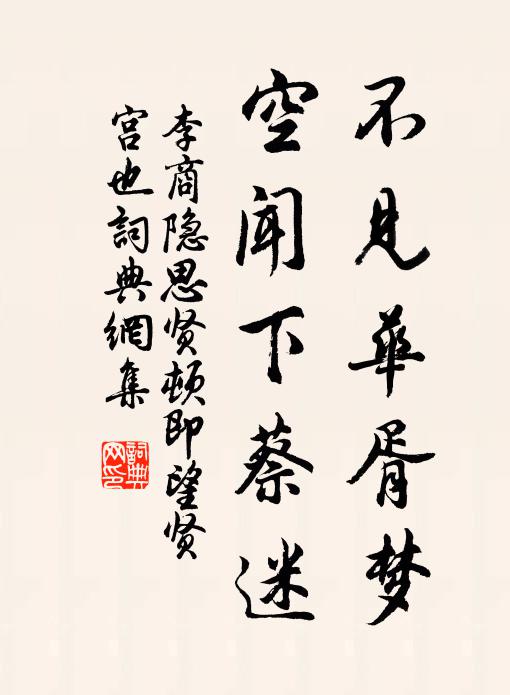 不见华胥梦
空闻下蔡迷
李商隐思贤顿即望贤
宫也詞典網集
詞典网印